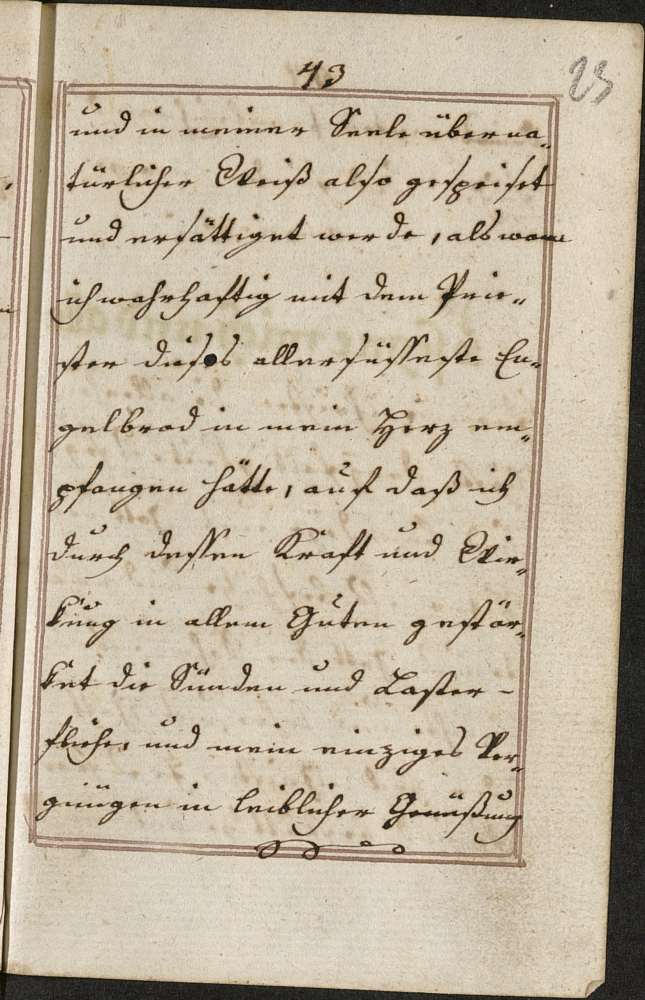 43
23
und in meiner Seele überna„
türlicher Weiß also gespeiset
und ersättiget werde, als wann
ich wahrhaftig mit dem Prie„
ster dieses allersüsseste En„
gelbrod in mein Herz em„
pfangen hätte, auf daß ich
durch dessen Kraft und Wir„
kung in allem Guten gestär„
ket die Sünden und Laster -
fliehe, und mein einziges Ver„
gnügen in leiblicher Genüßung